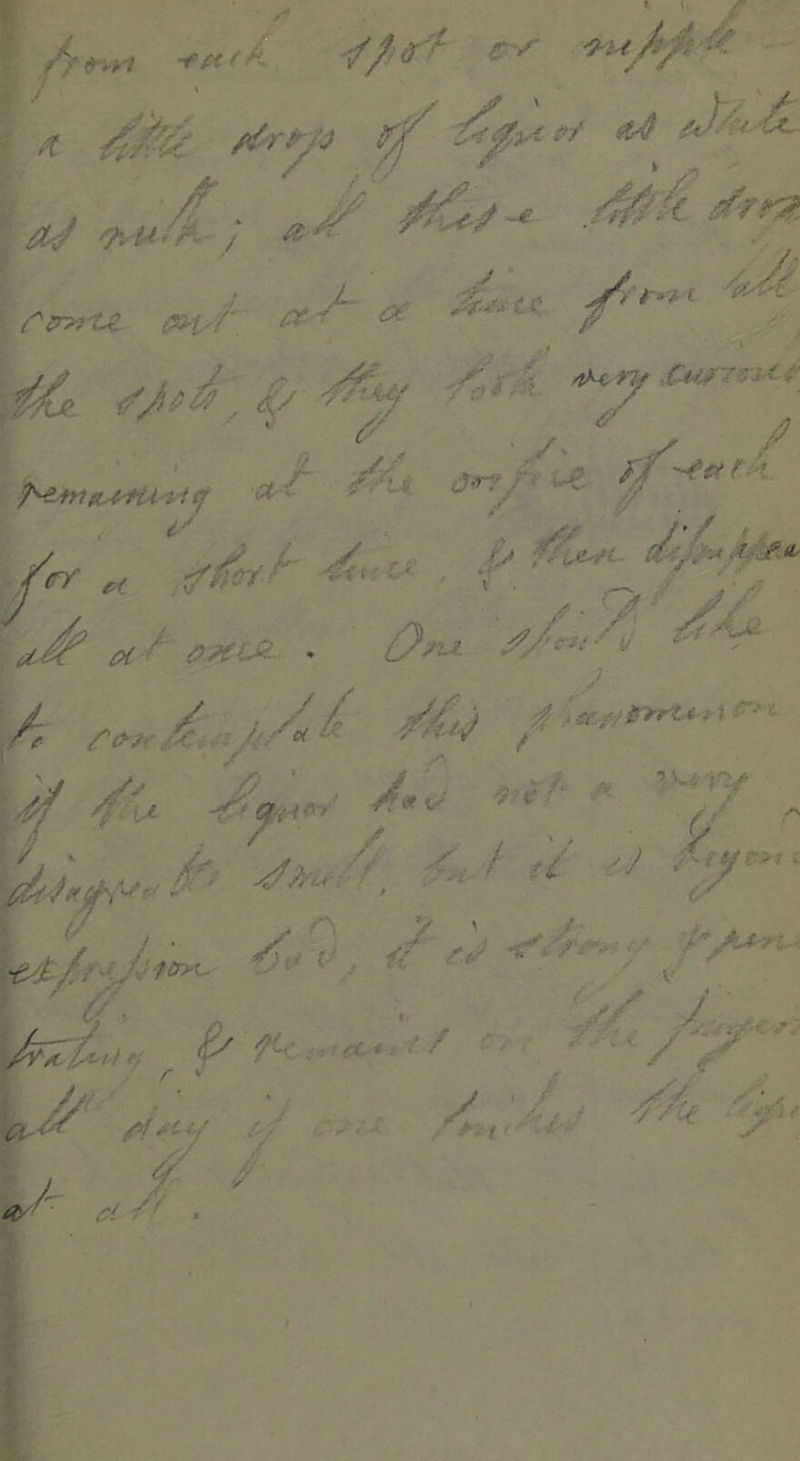 from each spot or nipple
a little drop of liquor as white
as milk; all these little drops
come out at a time from all
the spots, & they look very curious
remaining at the orifice of each
for a short time, & then disappea
all at once. One should like
to contemplate this phænomenon
if the liquor had not a very
disagreeable smell, but it is beyond
expression bad, it is strong & pene
trating, & remains on the fingers
all day if one touches the liquor
at all.